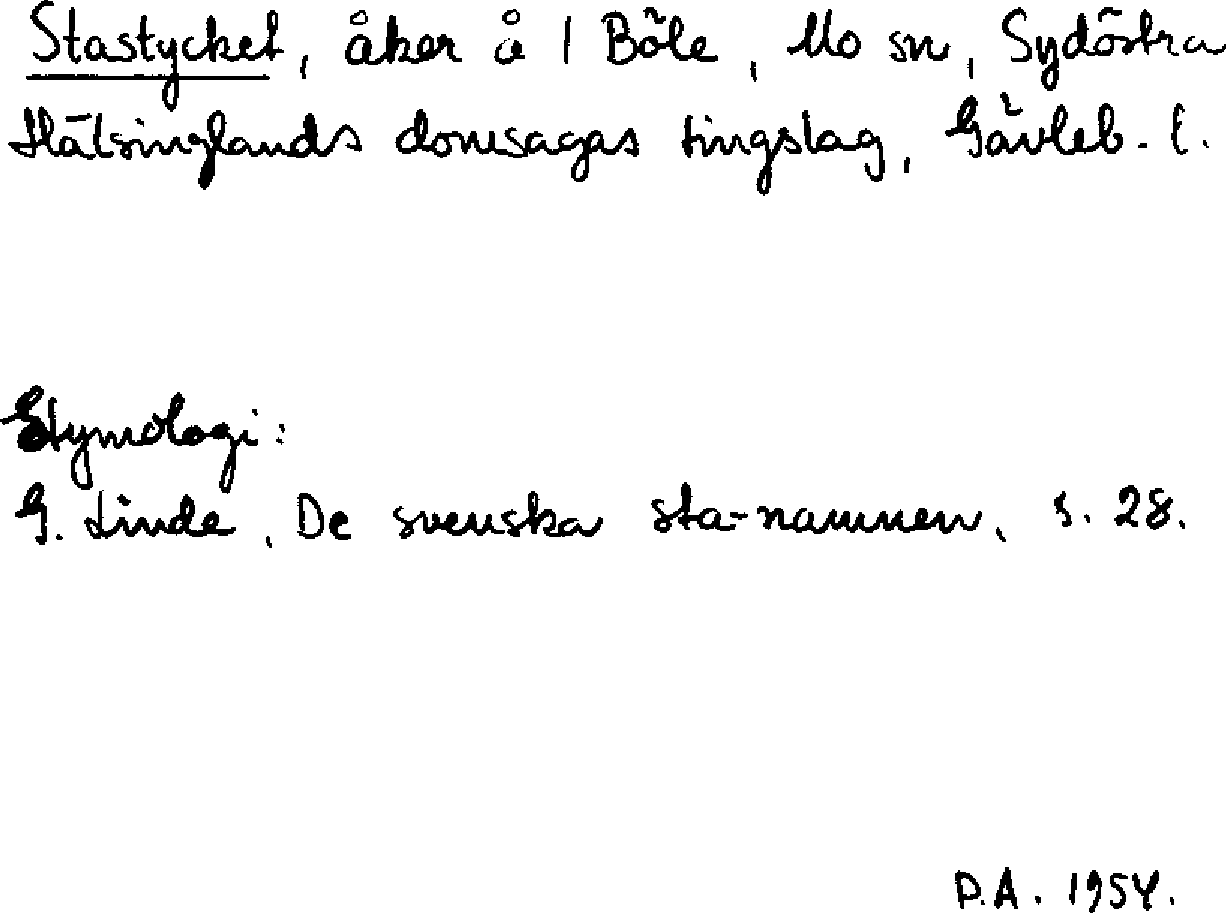 Stastycket, åker å 1 Böle, Mo sn, Sydöstra
Hälsinglands domsagas tingslag, Gävleb. l.
Etymologi:
G. Linde, De svenska sta-namnen, s. 28.
P.A. 1954.